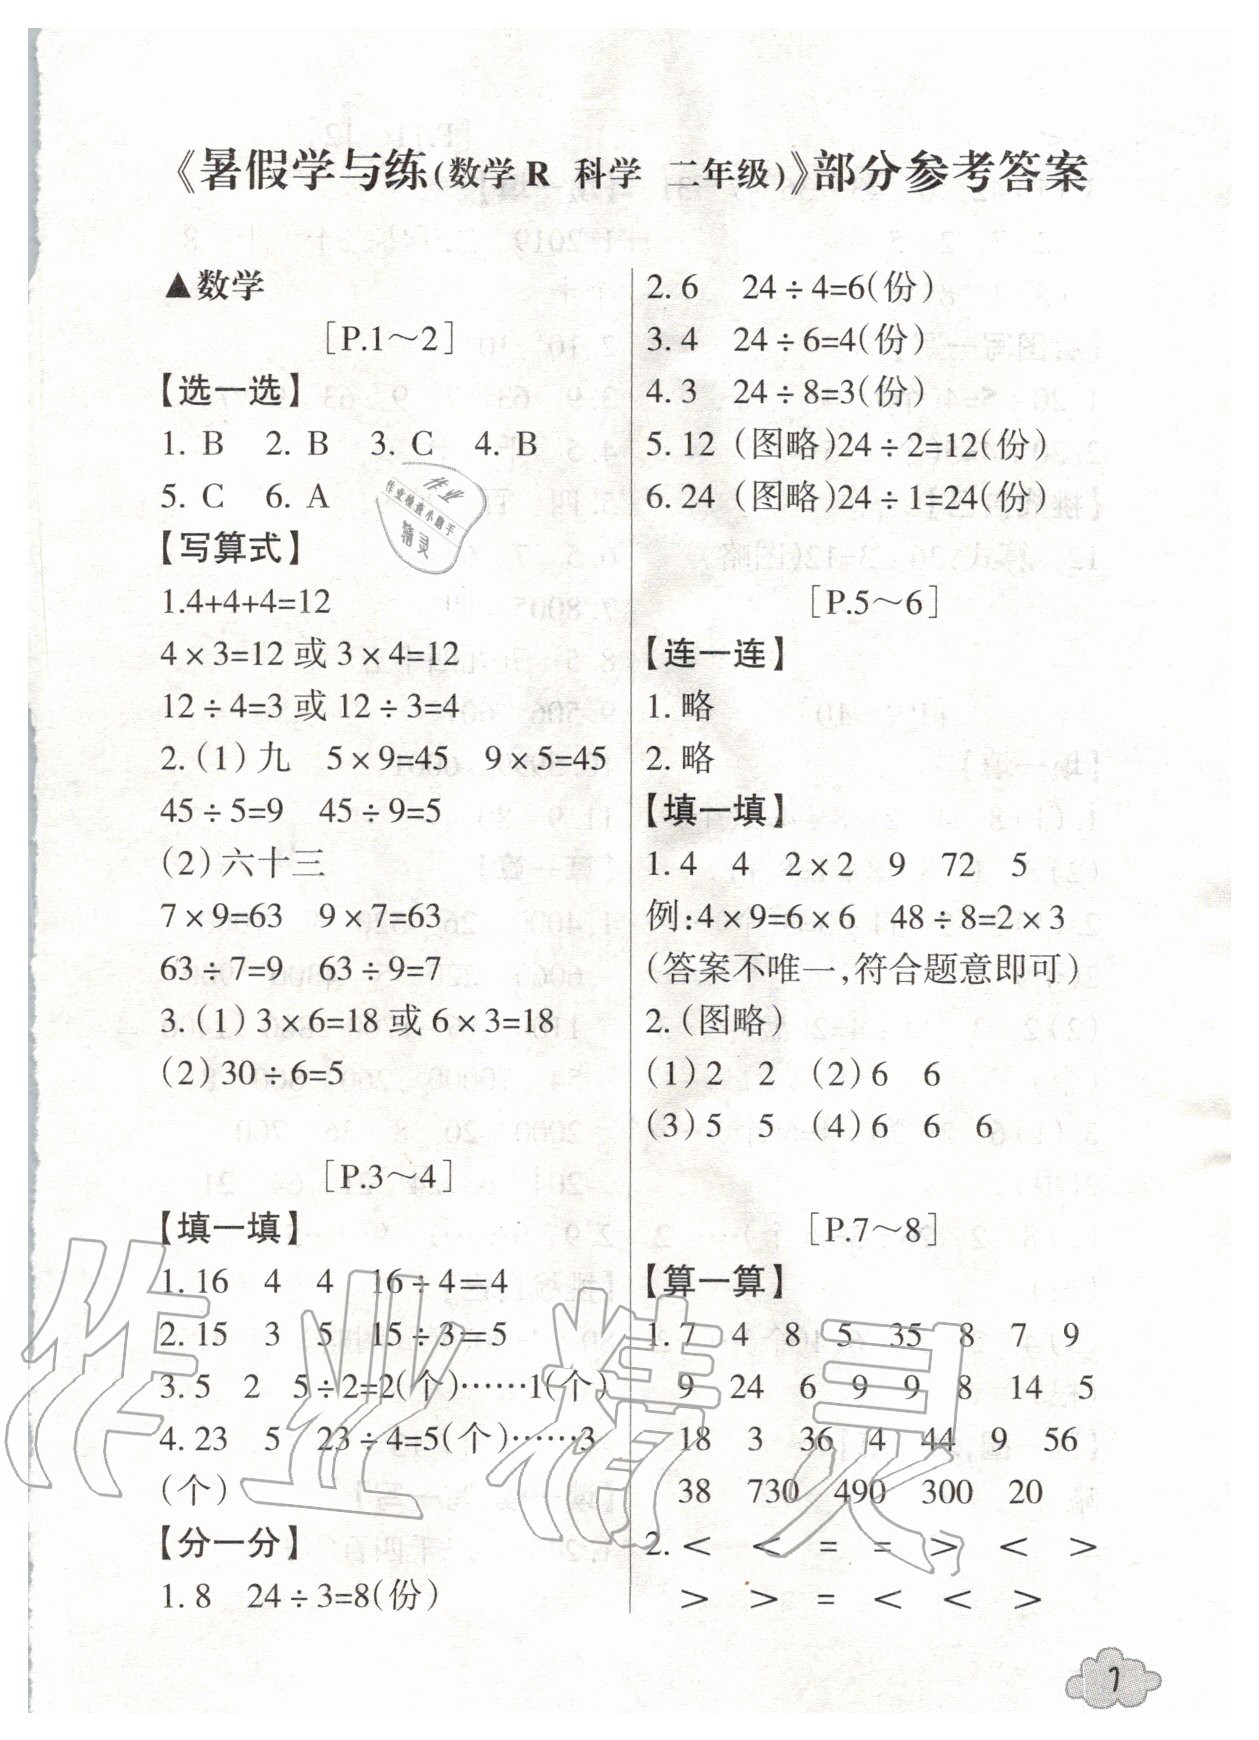 《暑假学与练(数学R 科学 二年级)》部分参考答案
▲数学
[P.1～2]
【选一选】
1. B 2. B 3. C 4. B
5. C 6. A
【写算式】
1.4+4+4=12
4×3=12 或 3×4=12
12÷4=3 或 12÷3=4
2.(1)九 5×9=45 9×5=45
45÷5=9 45÷9=5
(2)六十三
7×9=63 9×7=63
63÷7=9 63÷9=7
3.(1)3×6=18 或 6×3=18
(2)30÷6=5
[P.3～4]
【填一填】
1.16 4 4 16÷4=4
2.15 3 5 15÷3=5
3.5 2 5÷2=2(个)……1(个)
4.23 5 23÷4=5(个)……3
(个)
【分一分】
1.8 24÷3=8(份)
2.6 24÷4=6(份)
3.4 24÷6=4(份)
4.3 24÷8=3(份)
5.12 (图略)24÷2=12(份)
6.24 (图略)24÷1=24(份)
[P.5～6]
【连一连】
1.略
2.略
【填一填】
1.4 4 2×2 9 72 5
例:4×9=6×6 48÷8=2×3
(答案不唯一,符合题意即可)
2.(图略)
(1)2 2 (2)6 6
(3)5 5 (4)6 6 6
[P.7～8]
【算一算】
1.7 4 8 5 35 8 7 9
9 24 6 9 9 8 14 5
18 3 36 4 44 9 56
38 730 490 300 20
2.< < = = > < >
> > = < < >
1
作业
作业检查小助手
精灵
作业精灵